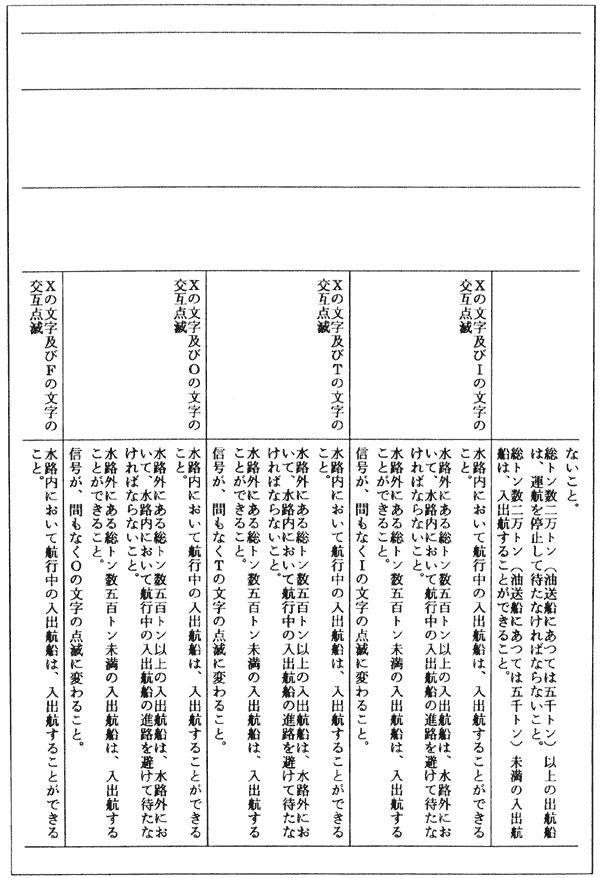 ないこと。
総トン数二万トン（油送船にあつては五千トン）以上の出航船
は、運航を停止して待たなければならないこと。
総トン数二万トン（油送船にあつては五千トン）未満の入出航
船は、入出航することができること。
Xの文字及びIの文字の
交互点滅
水路内において航行中の入出航船は、入出航することができる
こと。
水路外にある総トン数五百トン以上の入出航船は、水路外にお
いて、水路内において航行中の入出航船の進路を避けて待たな
ければならないこと。
水路外にある総トン数五百トン未満の入出航船は、入出航する
ことができること。
信号が、間もなくIの文字の点滅に変わること。
Xの文字及びTの文字の
交互点滅
水路内において航行中の入出航船は、入出航することができる
こと。
水路外にある総トン数五百トン以上の入出航船は、水路外にお
いて、水路内において航行中の入出航船の進路を避けて待たな
ければならないこと。
水路外にある総トン数五百トン未満の入出航船は、入出航する
ことができること。
信号が、間もなくTの文字の点滅に変わること。
Xの文字及びOの文字の
交互点滅
水路内において航行中の入出航船は、入出航することができる
こと。
水路外にある総トン数五百トン以上の入出航船は、水路外にお
いて、水路内において航行中の入出航船の進路を避けて待たな
ければならないこと。
水路外にある総トン数五百トン未満の入出航船は、入出航する
ことができること。
信号が、間もなくOの文字の点滅に変わること。
Xの文字及びFの文字の
交互点滅
水路内において航行中の入出航船は、入出航することができる
こと。